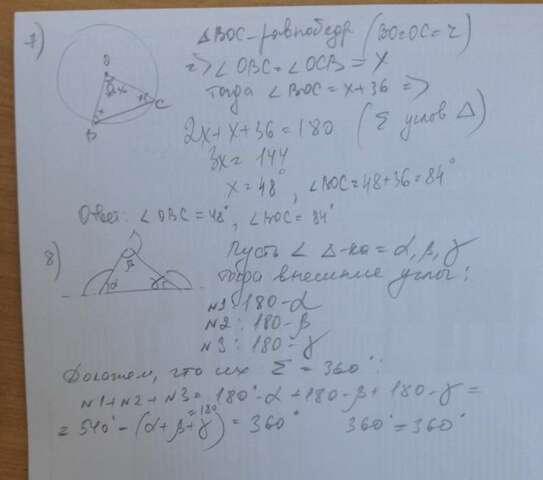 7) △BOC - равнобедр (BO=OC=r)
O
C
B
=> ∠OBC = ∠OCB = x
тогда ∠BOC = x+36 =>
2x+x+36=180 (Σ углов △)
3x=144
x=48°, ∠BOC=48+36=84°
Ответ: ∠OBC=48°, ∠BOC=84°
8) Пусть ∠ △-ка = α, β, γ
α β γ
тогда внешние углы:
№1: 180-α
№2: 180-β
№3: 180-γ
Докажем, что их Σ = 360°:
№1+№2+№3=180°-α+180-β+180-γ=
=540°-(α+β+γ)=360° 360°=360°
=180°